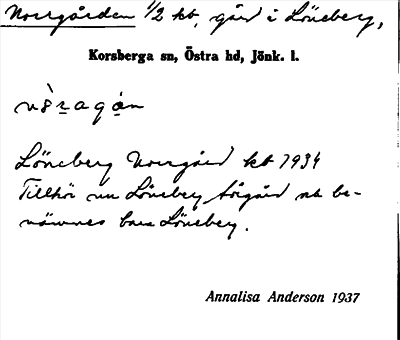 Norrgården 1/2 kt, gård i Löneberg,
Korsberga sn, Östra hd, Jönk. l.
Löneberg Norrgård kbt 1934
Tillhör nu Löneberg och be-
nämnes bara Löneberg.
Annalisa Anderson 1937